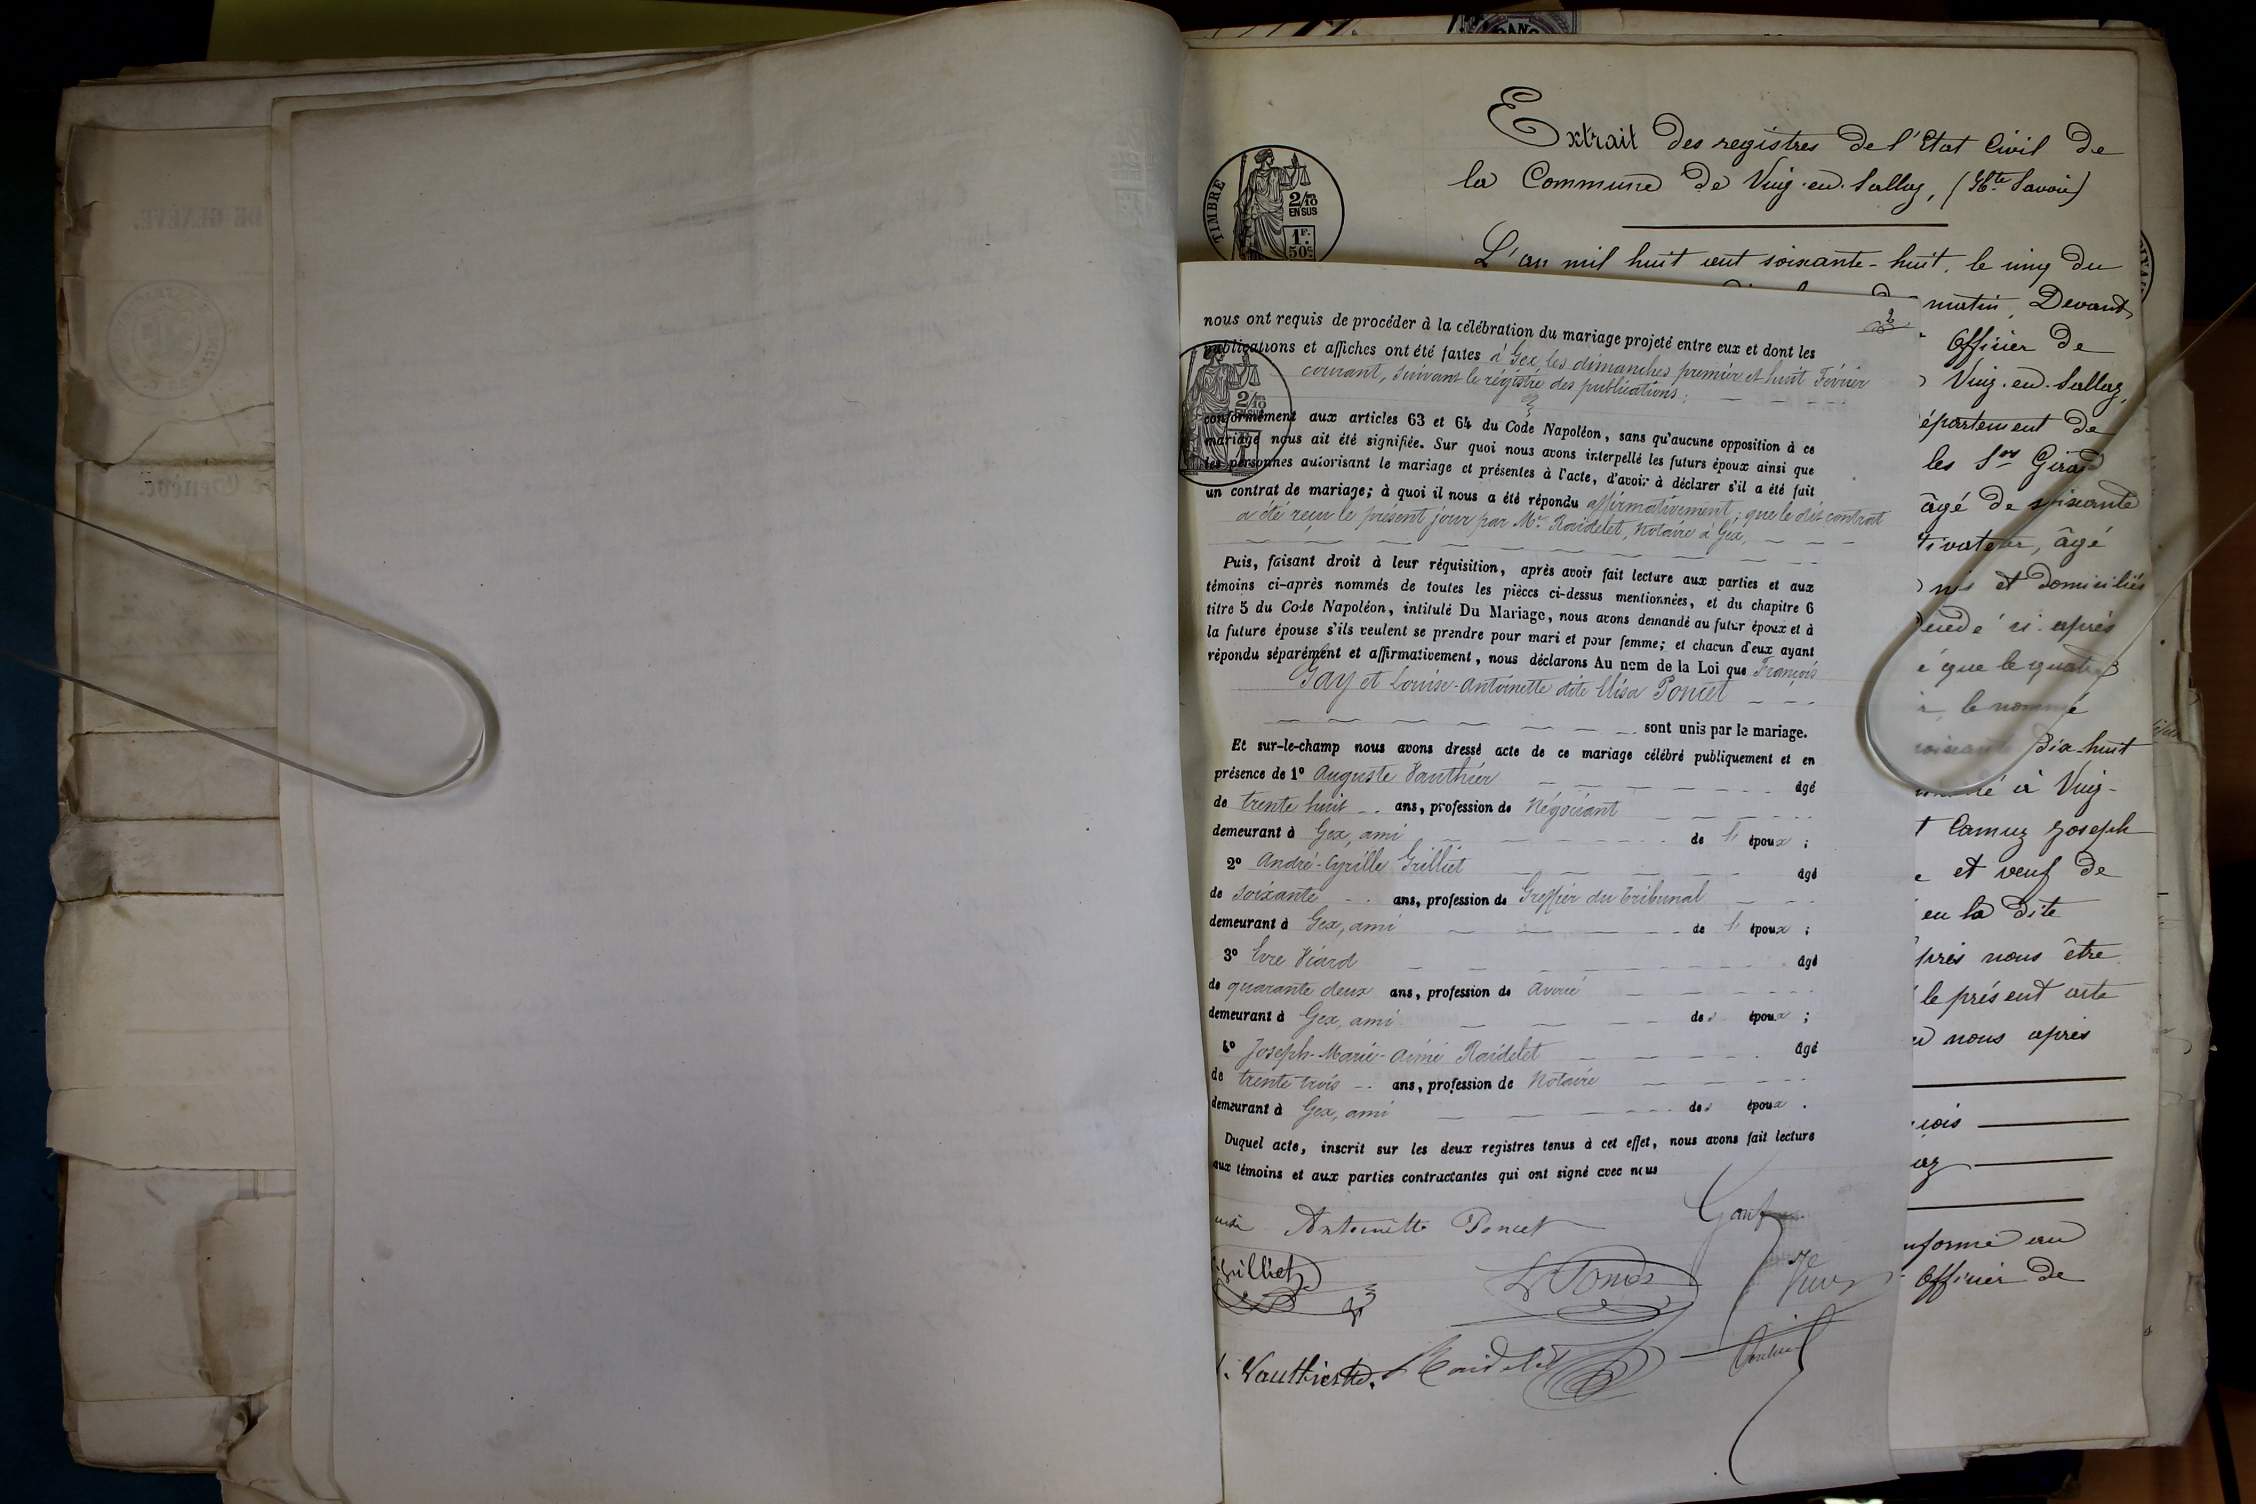 DE GENÈVE.
Genève.
Extrait des registres de l'Etat Civil de
la Commune de Viuz-en-Sallaz, (Hte Savoie)
TIMBRE
2/10
EN SUS
1F.
50c
L'an mil huit cent soixante-huit, le cinq du
matin, Devant
Officier de
Viuz-en-Sallaz,
épartement de
les Srs Girod
âgé de soixante
tivateur, âgé
nis et domiciliés
ci-après
é que le quatre
le nommé
dix-huit
é à Viuz-
Camuz Joseph
et veuf de
en la dite
près nous être
le présent acte
nous après
forme au
Officier de
2
nous ont requis de procéder à la célébration du mariage projeté entre eux et dont les
publications et affiches ont été faites à Gex, les dimanches premier et huit Février
courant, suivant le régistre des publications;
2/10
EN SUS
conformément aux articles 63 et 64 du Code Napoléon, sans qu'aucune opposition à ce
mariage nous ait été signifiée. Sur quoi nous avons interpellé les futurs époux ainsi que
les personnes autorisant le mariage et présentes à l'acte, d'avoir à déclarer s'il a été fait
un contrat de mariage; à quoi il nous a été répondu affirmativement; que le dit contrat
a été reçu le présent jour par Me Raidelet, Notaire à Gex,
Puis, faisant droit à leur réquisition, après avoir fait lecture aux parties et aux
témoins ci-après nommés de toutes les pièces ci-dessus mentionnées, et du chapitre 6
titre 5 du Code Napoléon, intitulé Du Mariage, nous avons demandé au futur époux et à
la future épouse s'ils veulent se prendre pour mari et pour femme; et chacun d'eux ayant
répondu séparément et affirmativement, nous déclarons Au nom de la Loi que François
Gay et Louise-Antoinette dite Elisa Poncet
sont unis par le mariage.
Et sur-le-champ nous avons dressé acte de ce mariage célébré publiquement et en
présence de 1° Auguste Vauthier âgé
de trente huit ans, profession de Négociant
demeurant à Gex, ami de l' époux ;
2° André-Cyrille Grilliet âgé
de soixante ans, profession de Greffier du Tribunal
demeurant à Gex, ami de l' époux ;
3° Evre Viard âgé
de quarante deux ans, profession de avoué
demeurant à Gex, ami des époux ;
4° Joseph-Marie-Aimé Raidelet âgé
de trente trois ans, profession de Notaire
demeurant à Gex, ami des époux .
Duquel acte, inscrit sur les deux registres tenus à cet effet, nous avons fait lecture
aux témoins et aux parties contractantes qui ont signé avec nous
Antoinette Poncet
Grilliet
Vauthier
Raidelet